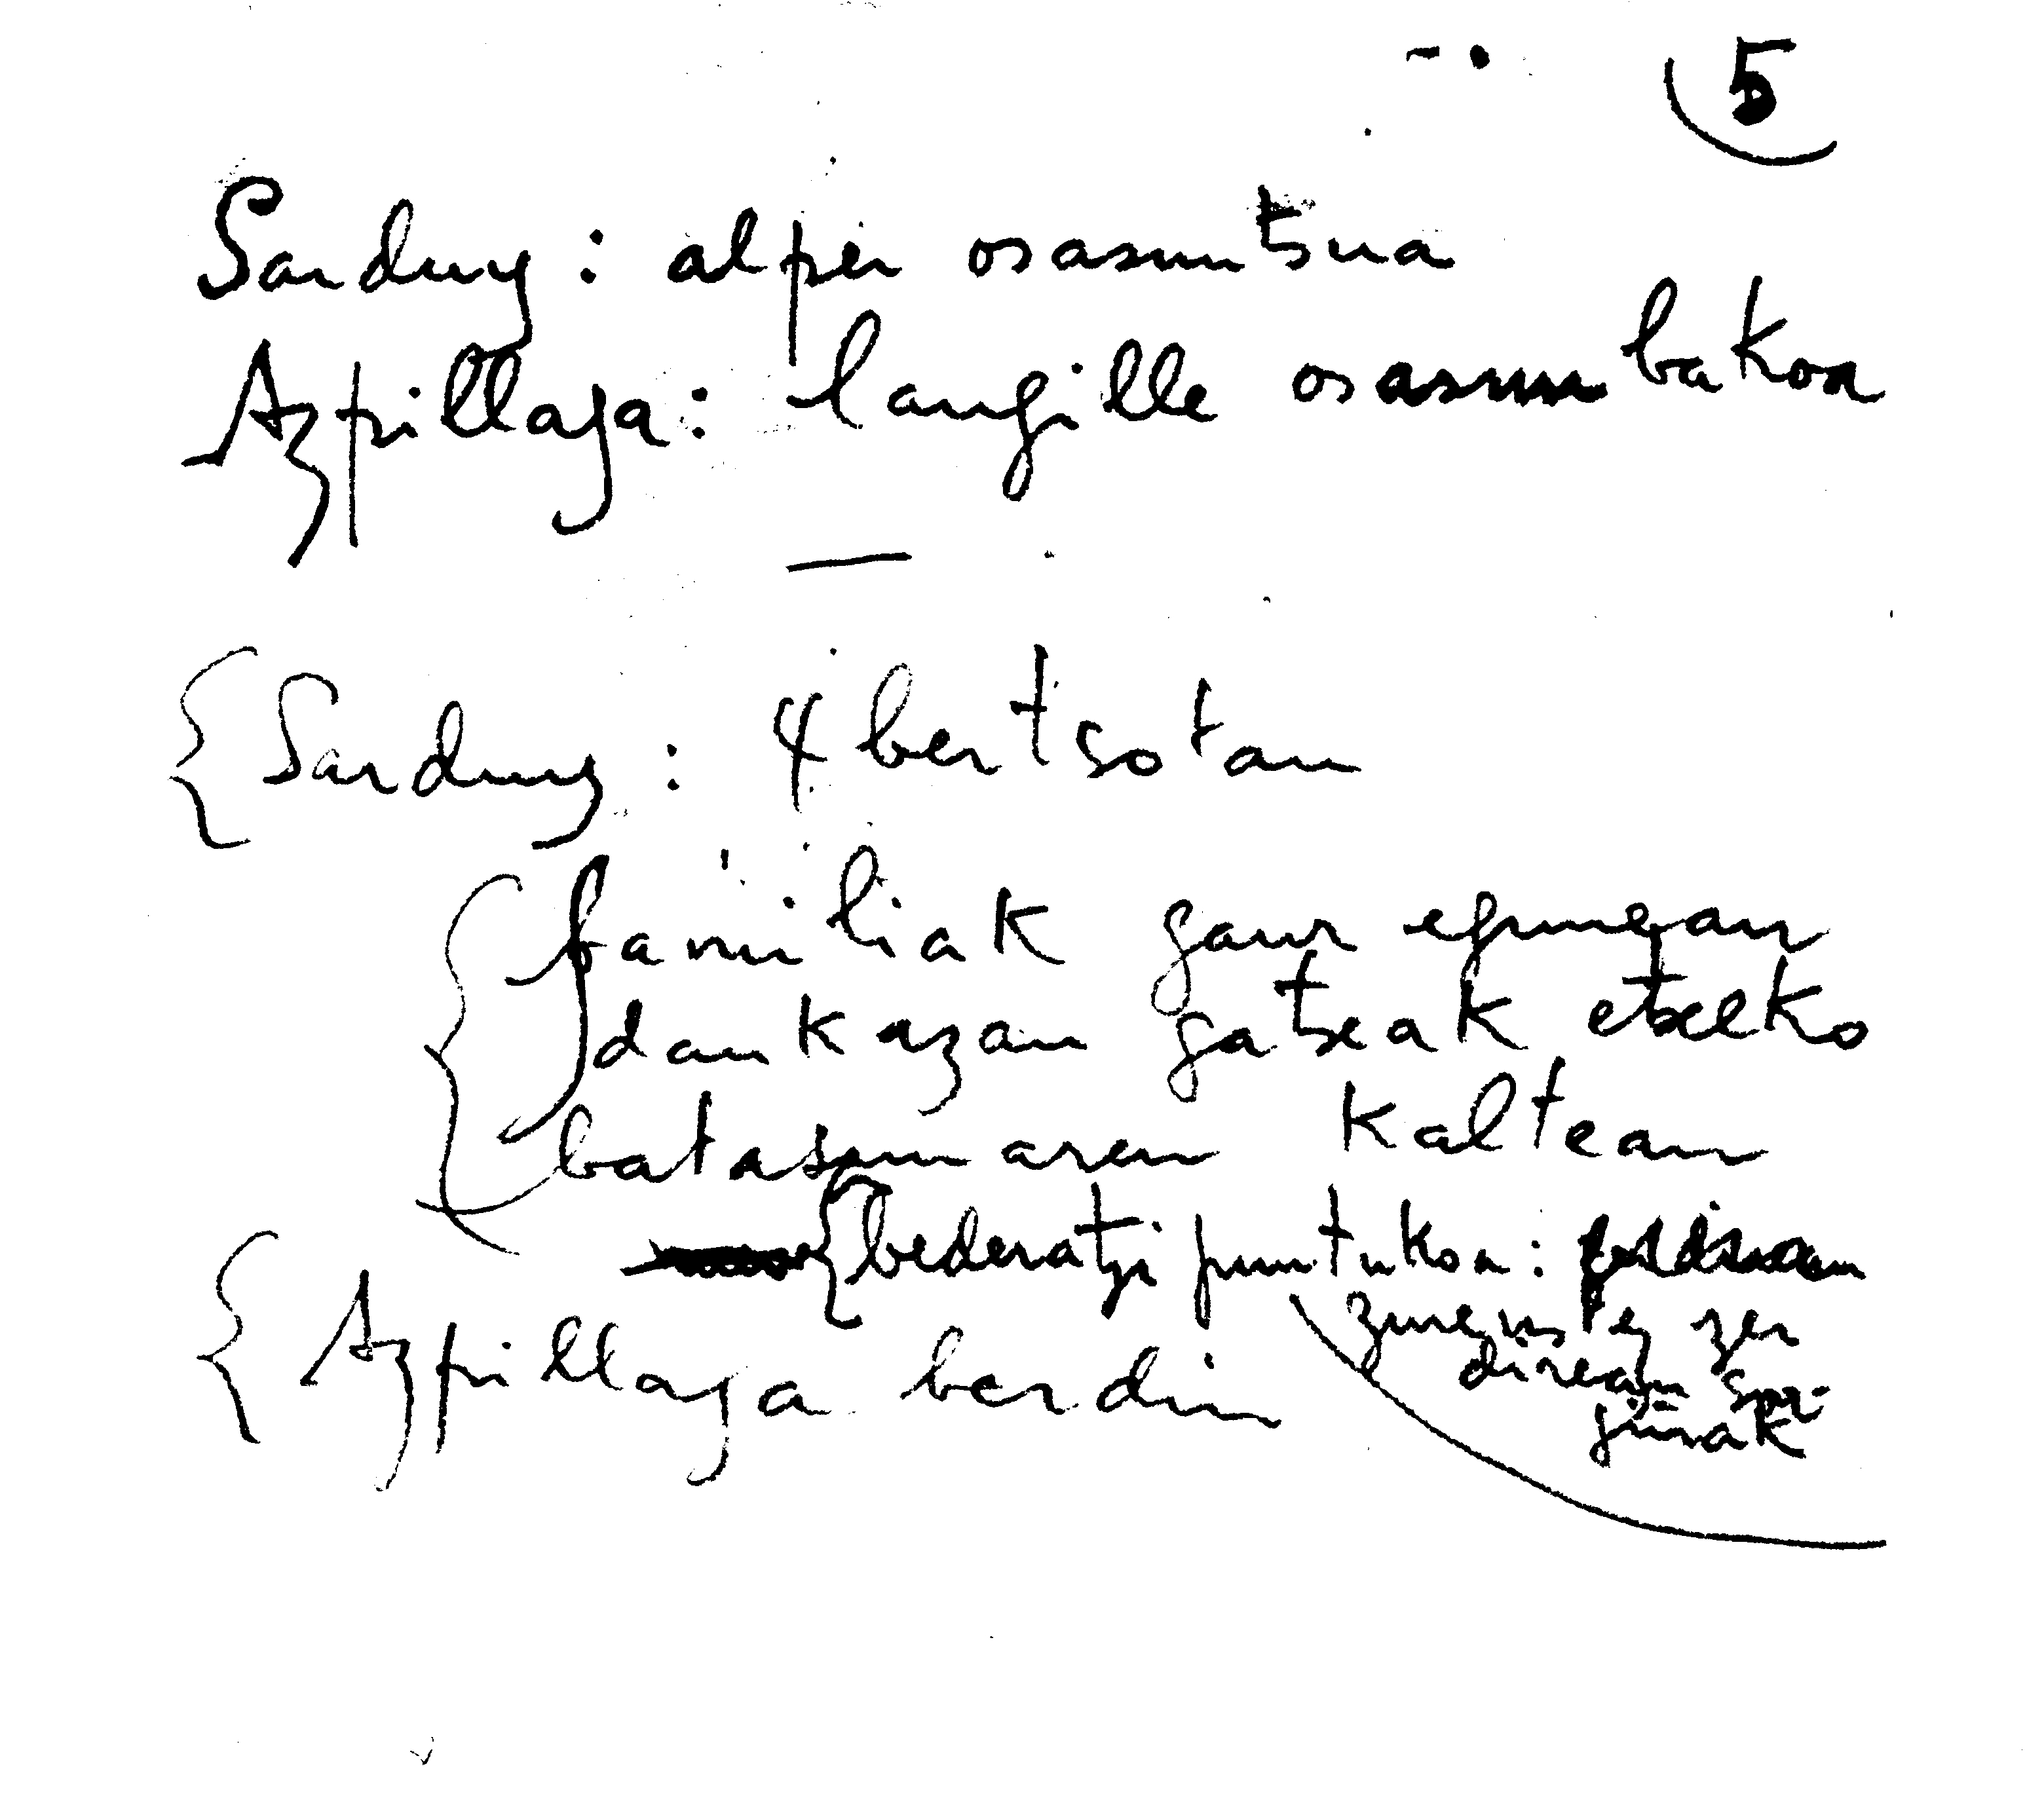 5
Sarduy: alper osasuntsua
Azpillaga: langille osasun bakoa
—
Sarduy: 4 bertsotan
familiak gaur egunean
daukazan gatxak etxeko
batasunaren kaltean
bederatzi puntukoa:
zure ustez zer
direan sor-
giñak
Azpillaga berdin